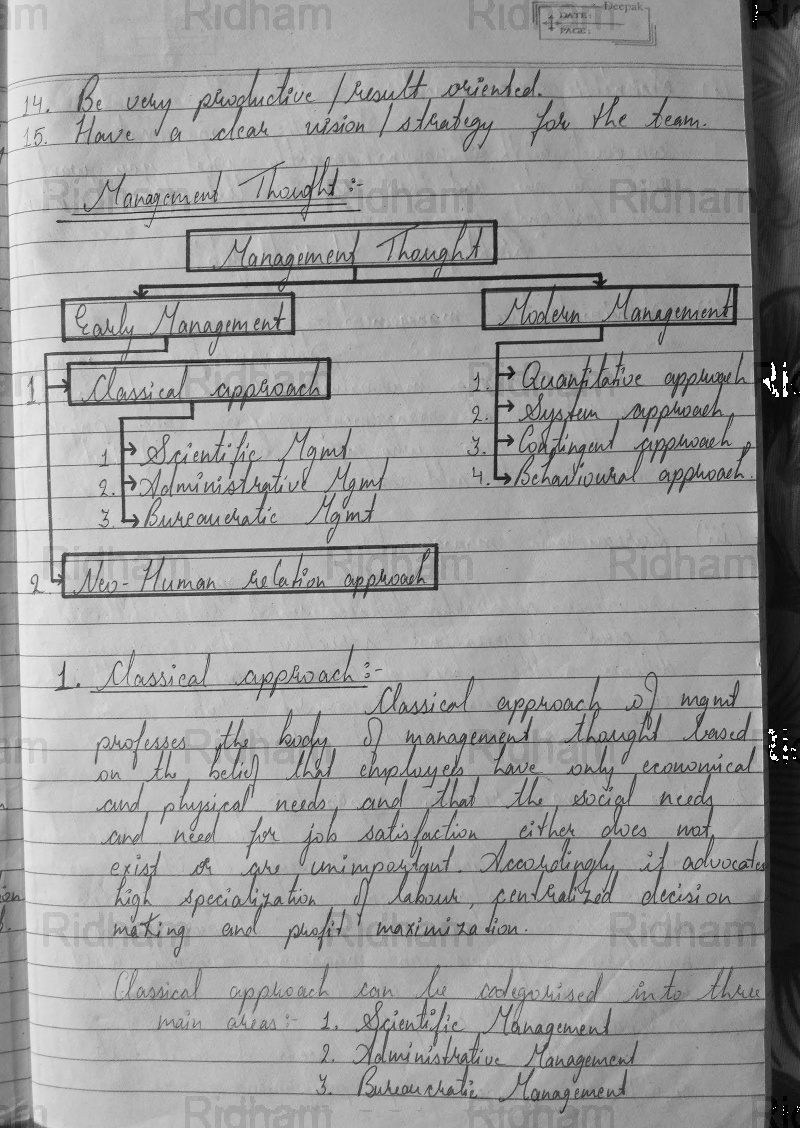 Deepak
DATE:
PAGE:
14. Be very productive / result oriented.
15. Have a clear vision / strategy for the team.
Management Thought :-
Management Thought
Early Management
Modern Management
1 Classical approach
1 Scientific Mgmt
2. Administrative Mgmt
3. Bureaucratic Mgmt
2 Neo-Human relation approach
1. Quantitative approach
2. System approach
3. Contingent approach
4. Behavioural approach.
1. Classical approach :-
Classical approach of mgmt
professes the body of management thought based
on the belief that employees have only economical
and physical needs, and that the social needs
and need for job satisfaction either does not
exist or are unimportant. Accordingly it advocates
high specialization of labour, centralized decision
making and profit maximization.
Classical approach can be categorised into three
main areas :- 1. Scientific Management
2. Administrative Management
3. Bureaucratic Management
Ridham